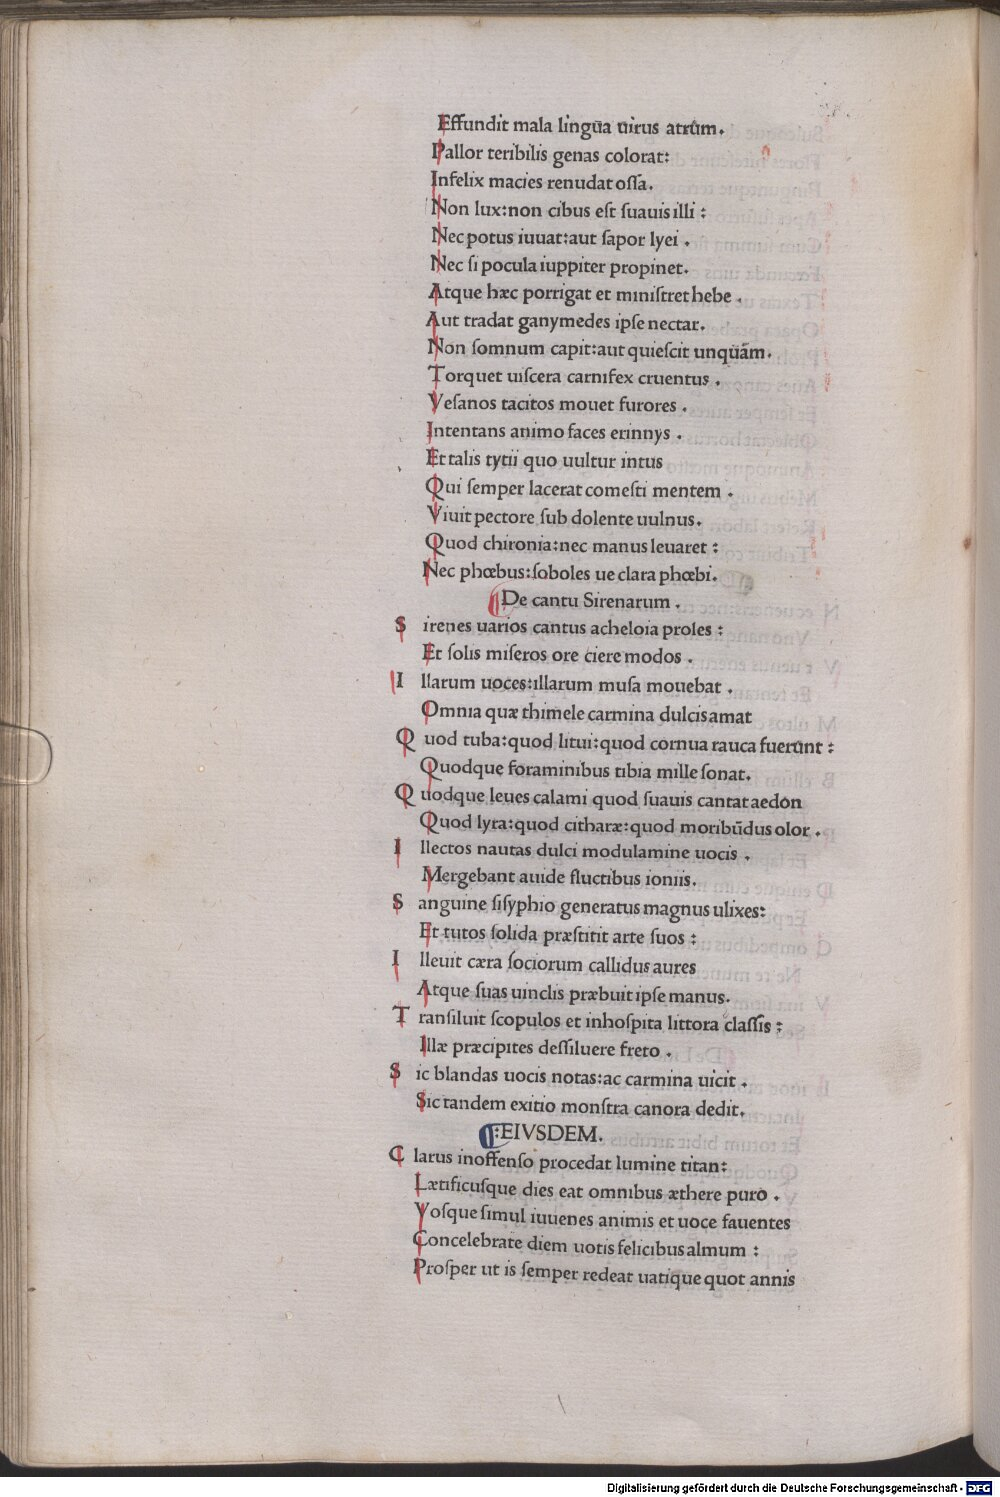 Effundit mala lingūa uirus atrūm.
Pallor teribilis genas colorat:
Infelix macies renudat oſſa.
Non lux:non cibus eſt ſuauis illi :
Nec potus iuuat:aut ſapor lyei .
Nec ſi pocula iuppiter propinet.
Atque hæc porrigat et miniſtret hebe .
Aut tradat ganymedes ipſe nectar.
Non ſomnum capit:aut quieſcit unquām.
Torquet uiſcera carnifex cruentus .
Veſanos tacitos mouet furores .
Intentans animo faces erinnys .
Et talis tytii quo uultur intus
Qui ſemper lacerat comeſti mentem .
Viuit pectore ſub dolente uulnus.
Quod chironia:nec manus leuaret :
Nec phœbus:ſoboles ue clara phœbi.
De cantu Sirenarum .
S irenes uarios cantus acheloia proles :
Et ſolis miſeros ore ciere modos .
I llarum uoces:illarum muſa mouebat .
Omnia quæ thimele carmina dulcis amat
Q uod tuba:quod litui:quod cornua rauca fuerūnt :
Quodque foraminibus tibia mille ſonat.
Q uodque leues calami quod ſuauis cantat aedon
Quod lyra:quod citharæ:quod moribūdus olor .
I llectos nautas dulci modulamine uocis .
Mergebant auide fluctibus ioniis.
S anguine ſiſyphio generatus magnus ulixes:
Et tutos ſolida præſtitit arte ſuos :
I lleuit cæra ſociorum callidus aures
Atque ſuas uinclis præbuit ipſe manus.
T ranſiluit ſcopulos et inhoſpita littora claſſis :
Illæ præcipites deſſiluere freto .
S ic blandas uocis notas:ac carmina uicit .
Sic tandem exitio monſtra canora dedit.
:EIVSDEM.
C larus inoffenſo procedat lumine titan:
Lætificuſque dies eat omnibus æthere puro .
Voſque ſimul iuuenes animis et uoce fauentes
Concelebrate diem uotis felicibus almum :
Proſper ut is ſemper redeat uatique quot annis
Digitalisierung gefördert durch die Deutsche Forschungsgemeinschaft - DFG